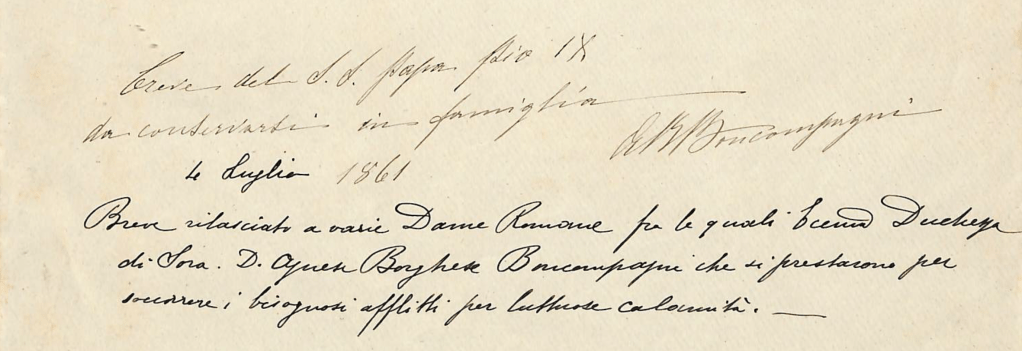 Breve del S. S. Papa Pio IX
da conservarsi in famiglia
A B Boncompagni
4 Luglio 1861
Breve rilasciato a varie Dame Romane fra le quali Duchessa
di Sora. D. Agnese Borghese Boncompagni che si prestarono per
soccorrere i bisognosi afflitti per luttuose calamità. —